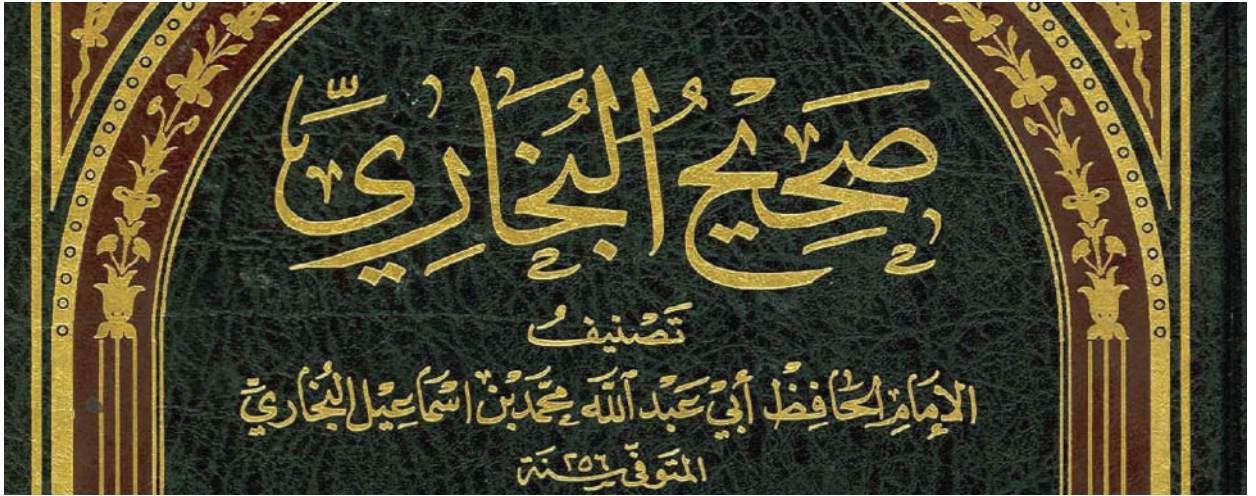 صَحِيْحُ البُخَارِيِّ
تَصْنِيفُ
الإِمَامِ الحَافِظْ أَبِي عَبْد اللَّه مُحَمَّد بْنْ اسْمَاعِيْل البُخَارِيّ
المتَوَفّىٰ سَنَة ٢٥٦